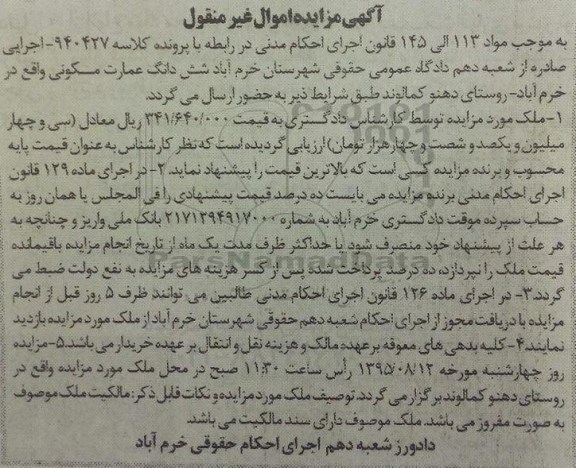 آگهی مزایده اموال غیر منقول
به موجب مواد ۱۱۳ الی ۱۴۵ قانون اجرای احکام مدنی در رابطه با پرونده کلاسه ۹۴۰۴۲۷-اجرایی
صادره از شعبه دهم دادگاه عمومی حقوقی شهرستان خرم آباد شش دانگ عمارت مسکونی واقع در
خرم آباد-روستای دهنو کمالوند طبق شرایط ذیر به حضور ارسال می گردد.
۱-ملک مورد مزایده توسط کارشناس دادگستری به قیمت ۳۴۱/۶۴۰/۰۰۰ ریال معادل (سی و چهار
میلیون و یکصد و شصت و چهار هزار تومان) ارزیابی گردیده است که نظر کارشناس به عنوان قیمت پایه
محسوب و برنده مزایده کسی است که بالاترین قیمت را پیشنهاد نماید. ۲- در اجرای ماده ۱۲۹ قانون
اجرای احکام مدنی برنده مزایده می بایست ده درصد قیمت پیشنهادی را فی المجلس یا همان روز به
حساب سپرده موقت دادگستری خرم آباد به شماره ۲۱۷۱۲۹۴۹۱۷۰۰۰ بانک ملی واریز و چنانچه به
هر علت از پیشنهاد خود منصرف شود یا حداکثر ظرف مدت یک ماه از تاریخ انجام مزایده باقیمانده
قیمت ملک را نپردازد، ده درصد پرداخت شده پس از کسر هزینه های مزایده به نفع دولت ضبط می
گردد.۳- در اجرای ماده ۱۲۶ قانون اجرای احکام مدنی طالبین می توانند ظرف ۵ روز قبل از انجام
مزایده با دریافت مجوز از اجرای احکام شعبه دهم حقوقی شهرستان خرم آباد از ملک مورد مزایده بازدید
نمایند.۴-کلیه بدهی های معوقه بر عهده مالک و هزینه نقل و انتقال بر عهده خریدار می باشد.۵-مزایده
روز چهارشنبه مورخه ۱۳۹۵/۰۸/۱۲ رأس ساعت ۱۱:۳۰ صبح در محل ملک مورد مزایده واقع در
روستای دهنو کمالوند برگزار می گردد. توصیف ملک مورد مزایده و نکات قابل ذکر: مالکیت ملک موصوف
به صورت مفروز می باشد. ملک موصوف دارای سند مالکیت می باشد.
دادورز شعبه دهم اجرای احکام حقوقی خرم آباد
ParsNamadData